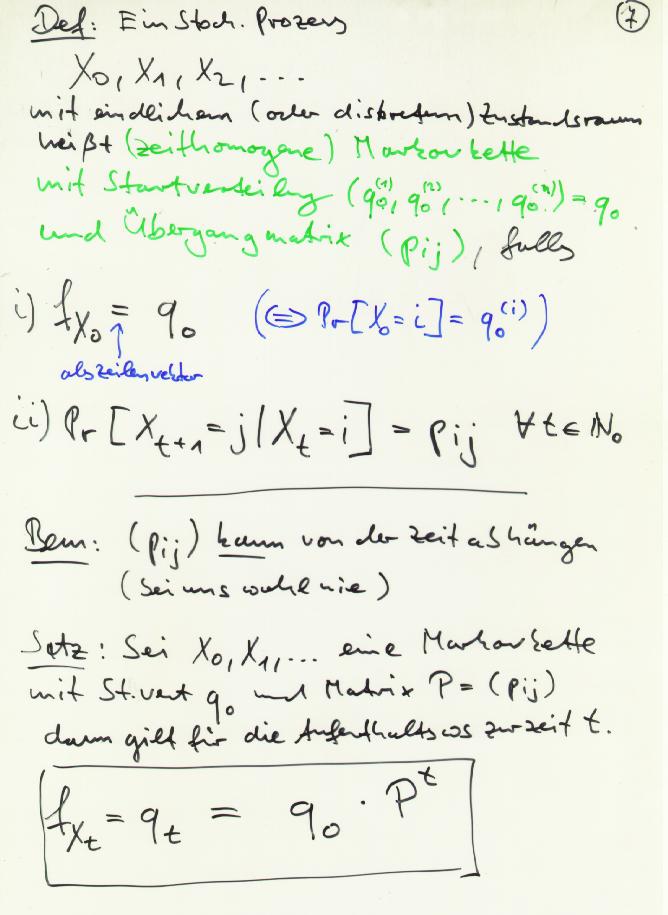 Def: Ein Stoch. Prozess
⑦
X₀, X₁, X₂, ...
mit endlichem (oder diskretem) Zustandsraum
heißt (zeithomogene) Markovkette
mit Startverteilung (q₀⁽¹⁾, q₀⁽²⁾, ..., q₀⁽ⁿ⁾) = q₀
und Übergangmatrix (pij), falls
i) f_X₀ = q₀ (⇔ Pr[X₀ = i] = q₀⁽ⁱ⁾)
als Zeilenvektor
ii) Pr[X_{t+1} = j | X_t = i] = pij ∀ t ∈ ℕ₀
Bem: (pij) kann von der Zeit abhängen
(bei uns wohl nie)
Satz: Sei X₀, X₁, ... eine Markovkette
mit St.vert q₀ und Matrix P = (pij)
dann gilt für die Aufenthaltsws zur Zeit t.
f_{X_t} = q_t = q₀ · Pᵗ